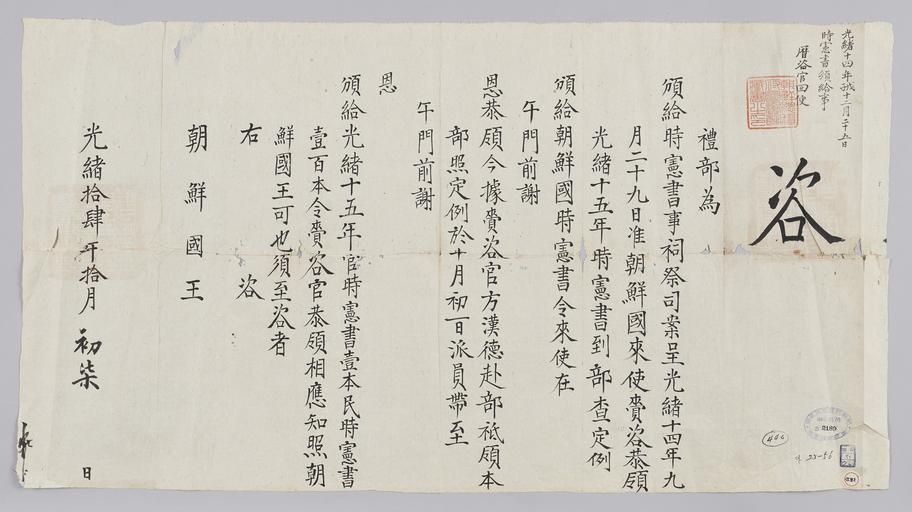 光緒十四年戊十二月二十五日
時憲書頒給事
曆咨官回使
咨
禮部為
頒給時憲書事祠祭司案呈光緒十四年九
月二十九日准朝鮮國來使賫咨恭領
光緒十五年時憲書到部查定例
頒給朝鮮國時憲書令來使在
午門前謝
恩恭領今據賫咨官方漢德赴部祗領本
部照定例於十月初一日派員帶至
午門前謝
恩
頒給光緒十五年官時憲書壹本民時憲書
壹百本令賫咨官恭領相應知照朝
鮮國王可也須至咨者
右咨
朝鮮國王
光緒拾肆年拾月初柒日
2180
23-56